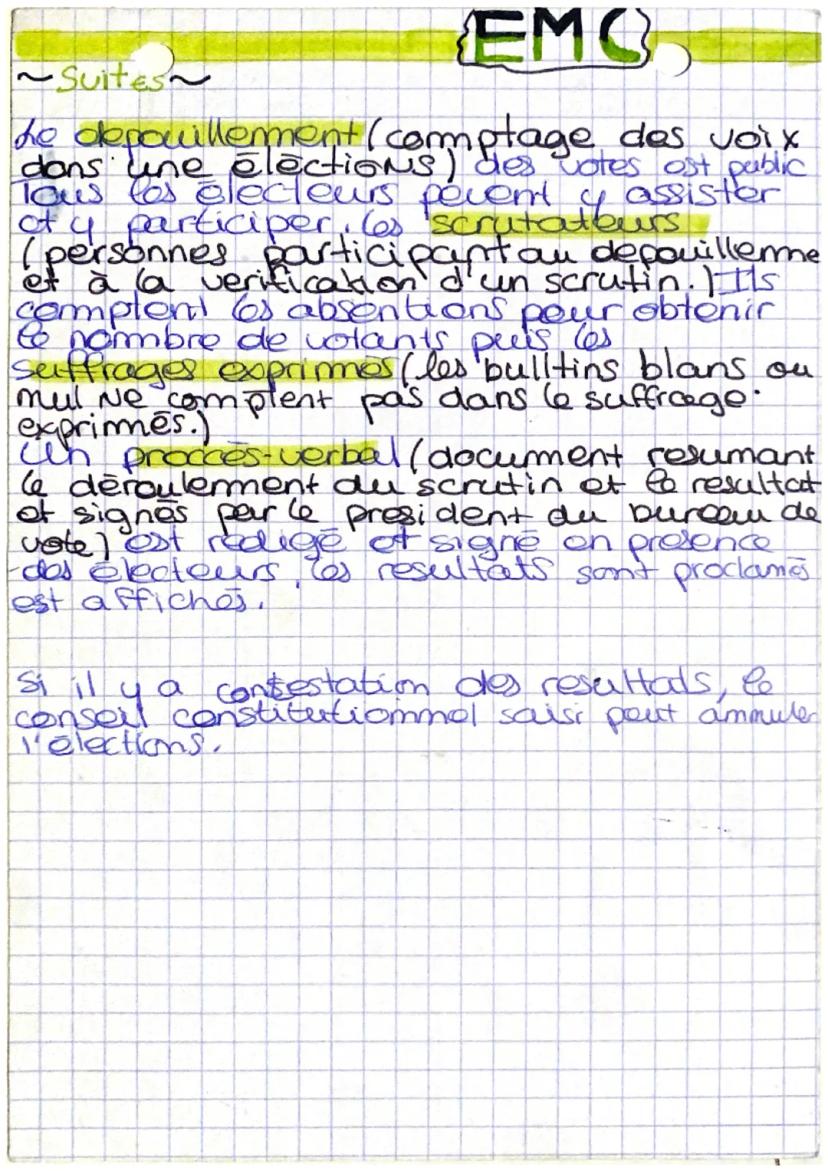 EMC
~Suites~
Le depouillement (comptage des voix
dans une élèctions) des votes est public
Tous les électeurs peuvent y assister
et y participer. les scrutateurs
(personnes participant au depouilleme
et à la verification d'un scrutin.) Ils
comptent les absentions pour obtenir
le nombre de votants puis les
suffrages exprimés (les bulltins blans ou
nul ne comptent pas dans le suffrage.
exprimés.)
Un proccès-verbal (document resumant
le déroulement du scrutin et le resultat
et signés par le president du bureau de
vote) est rédigé et signé en presence
des électeurs, les resultats sont proclamés
est affichés.
Si il y a contestation des resultats, le
conseil constitutionnel saisi peut annuler
l'élections.